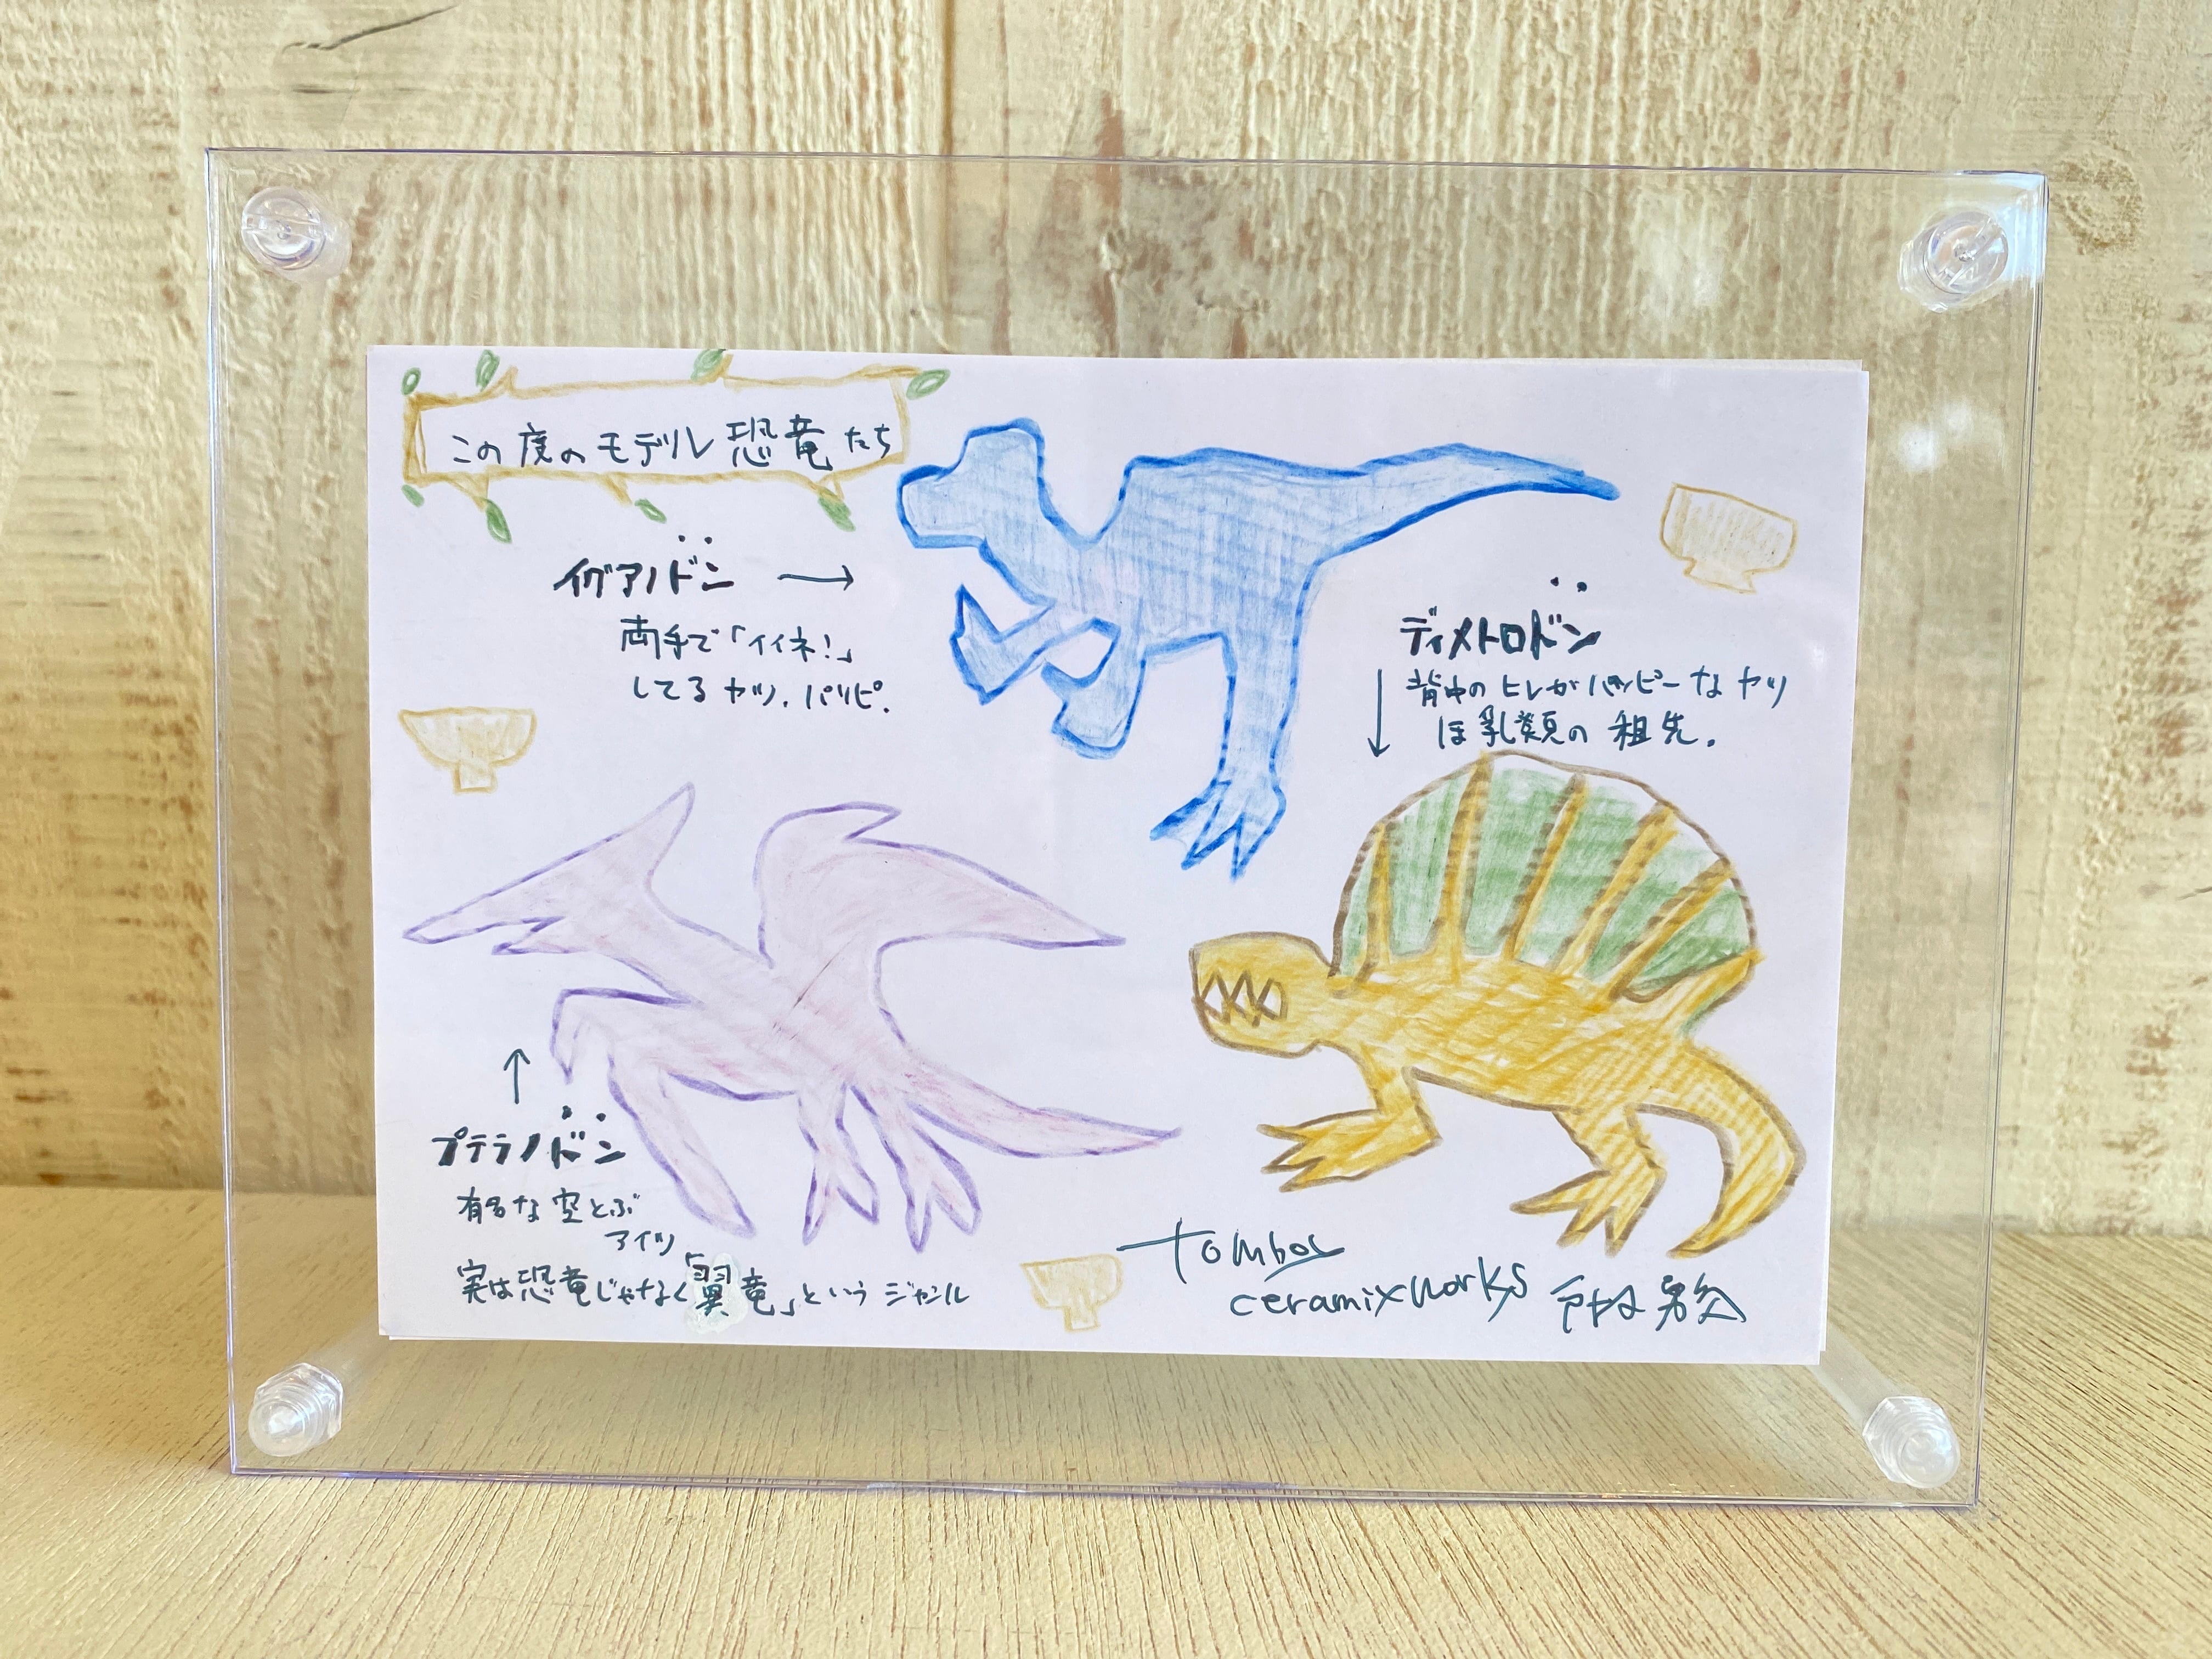 この度のモデル恐竜たち
イグアノドン →
両手で「イイネ!」
してるヤツ。パリピ。
ディメトロドン
背中のヒレがハッピーなヤツ
ほ乳類の祖先。
プテラノドン
有名な空とぶ
アイツ
実は恐竜じゃなく「翼竜」というジャンル
ceramixworks